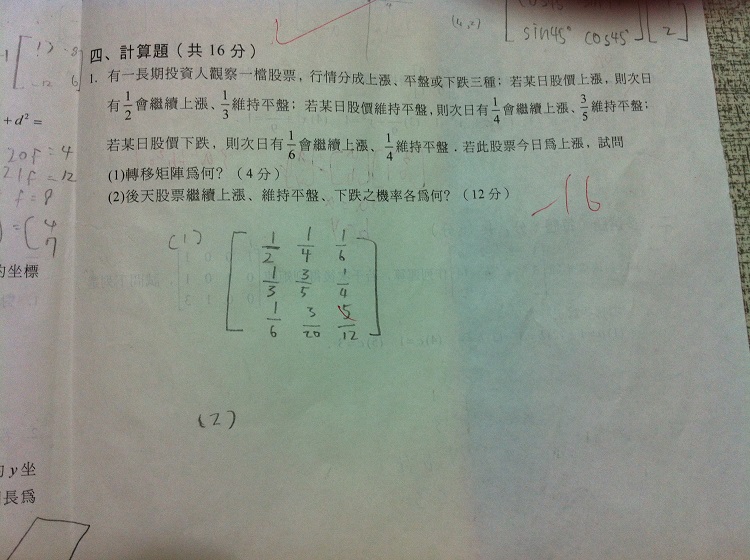 sin45° cos45°
2
(4,2)
四、計算題（共16分）
1. 有一長期投資人觀察一檔股票，行情分成上漲、平盤或下跌三種；若某日股價上漲，則次日
有1/2會繼續上漲、1/3維持平盤；若某日股價維持平盤，則次日有1/4會繼續上漲、3/5維持平盤；
若某日股價下跌，則次日有1/6會繼續上漲、1/4維持平盤．若此股票今日為上漲，試問
(1)轉移矩陣為何？（4分）
(2)後天股票繼續上漲、維持平盤、下跌之機率各為何？（12分）
-16
+ d² =
20f = 4
21f = 12
f = 8
(1)
1/2 1/4 1/6
1/3 3/5 1/4
1/6 3/20 5/12
(2)
4
7
的坐標
y坐
長為